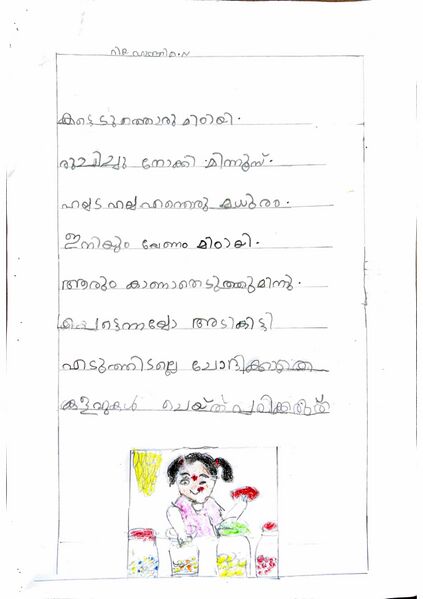 കട്ടെടുത്തൊരു മിഠായി.
രുചിച്ചു നോക്കി മിന്നൂസ്.
ഹയ്യട ഹയ്യ എന്തൊരു മധുരം.
ഇനിയും വേണം മിഠായി.
ആരും കാണാതെടുത്തുമിന്നു.
പെട്ടെന്നയ്യോ അടികിട്ടി
എടുത്തിടല്ലെ ചോദിക്കാതെ
കളവുകൾ ചെയ്ത് പഠിക്കരുത്